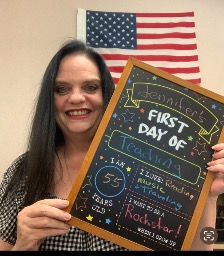 Jennifer's
FIRST
DAY OF
Teaching
I AM
55
YEARS
OLD
I LOVE: Reading
music
+ Traveling
I WANT TO BE A
Rockstar!
WHEN I GROW UP